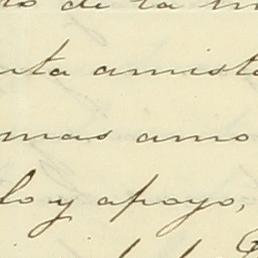 de la
amist
mas amo
lo y apoyo,